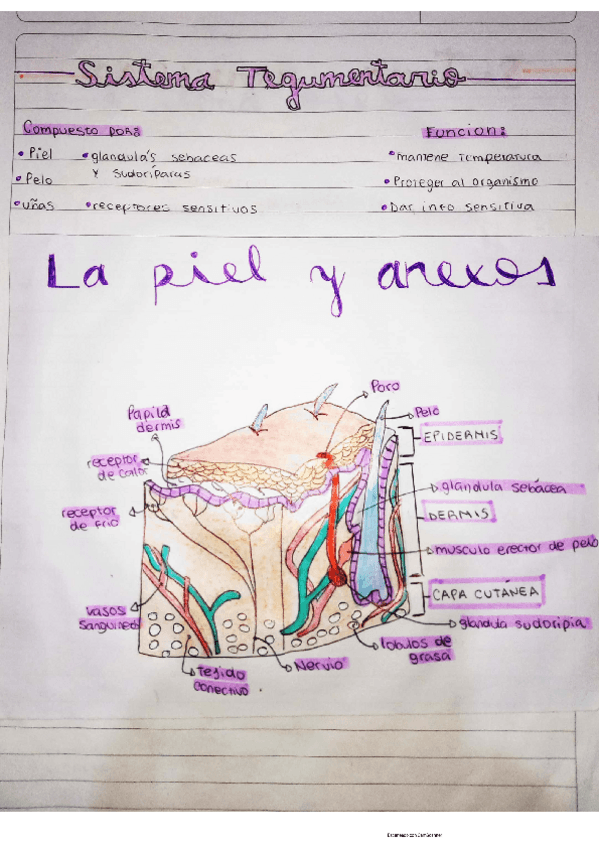 Sistema Tegumentario
Compuesto por:
• Piel
• Pelo
• uñas
• glandula's sebaceas
y sudoríparas
• receptores sensitivos
Funcion:
• mantiene temperatura
• Proteger al organismo
• Dar info sensitiva
La piel y anexos
Poro
Pelo
Papila
dermis
EPIDERMIS
receptor
de calor
glándula sebácea
receptor
de frio
DERMIS
musculo erector de pelo
CAPA CUTÁNEA
vasos
sanguineos
glandula sudoripia
lobulos de
grasa
Nervio
Tejido
conectivo
Escaneado con CamScanner